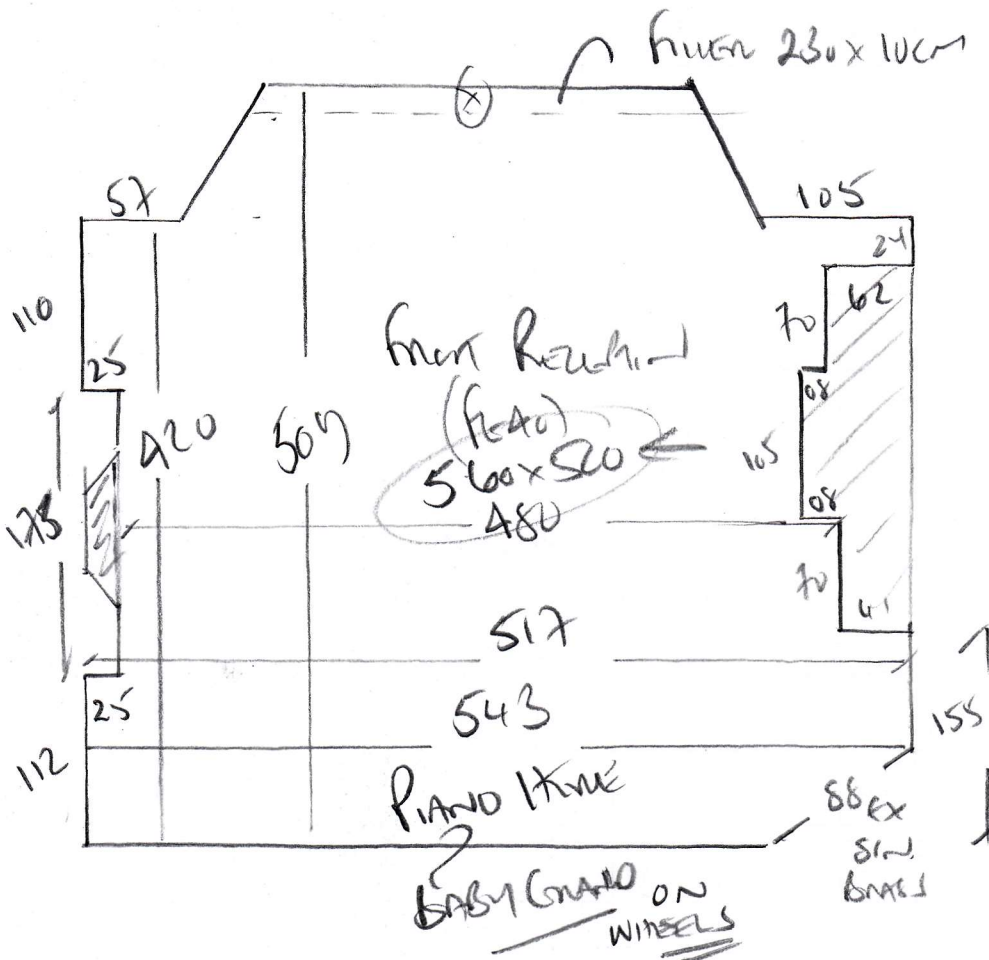 FILLER 230 x 10CM
57
105
24
62
110
70
25
08
FRONT RECEPTION
420
509
560 x 520
105
480
08
173
70
41
517
25
543
155
112
PIANO HERE
88 EX
SIN
BRASS
BABY GRAND ON
WHEELS